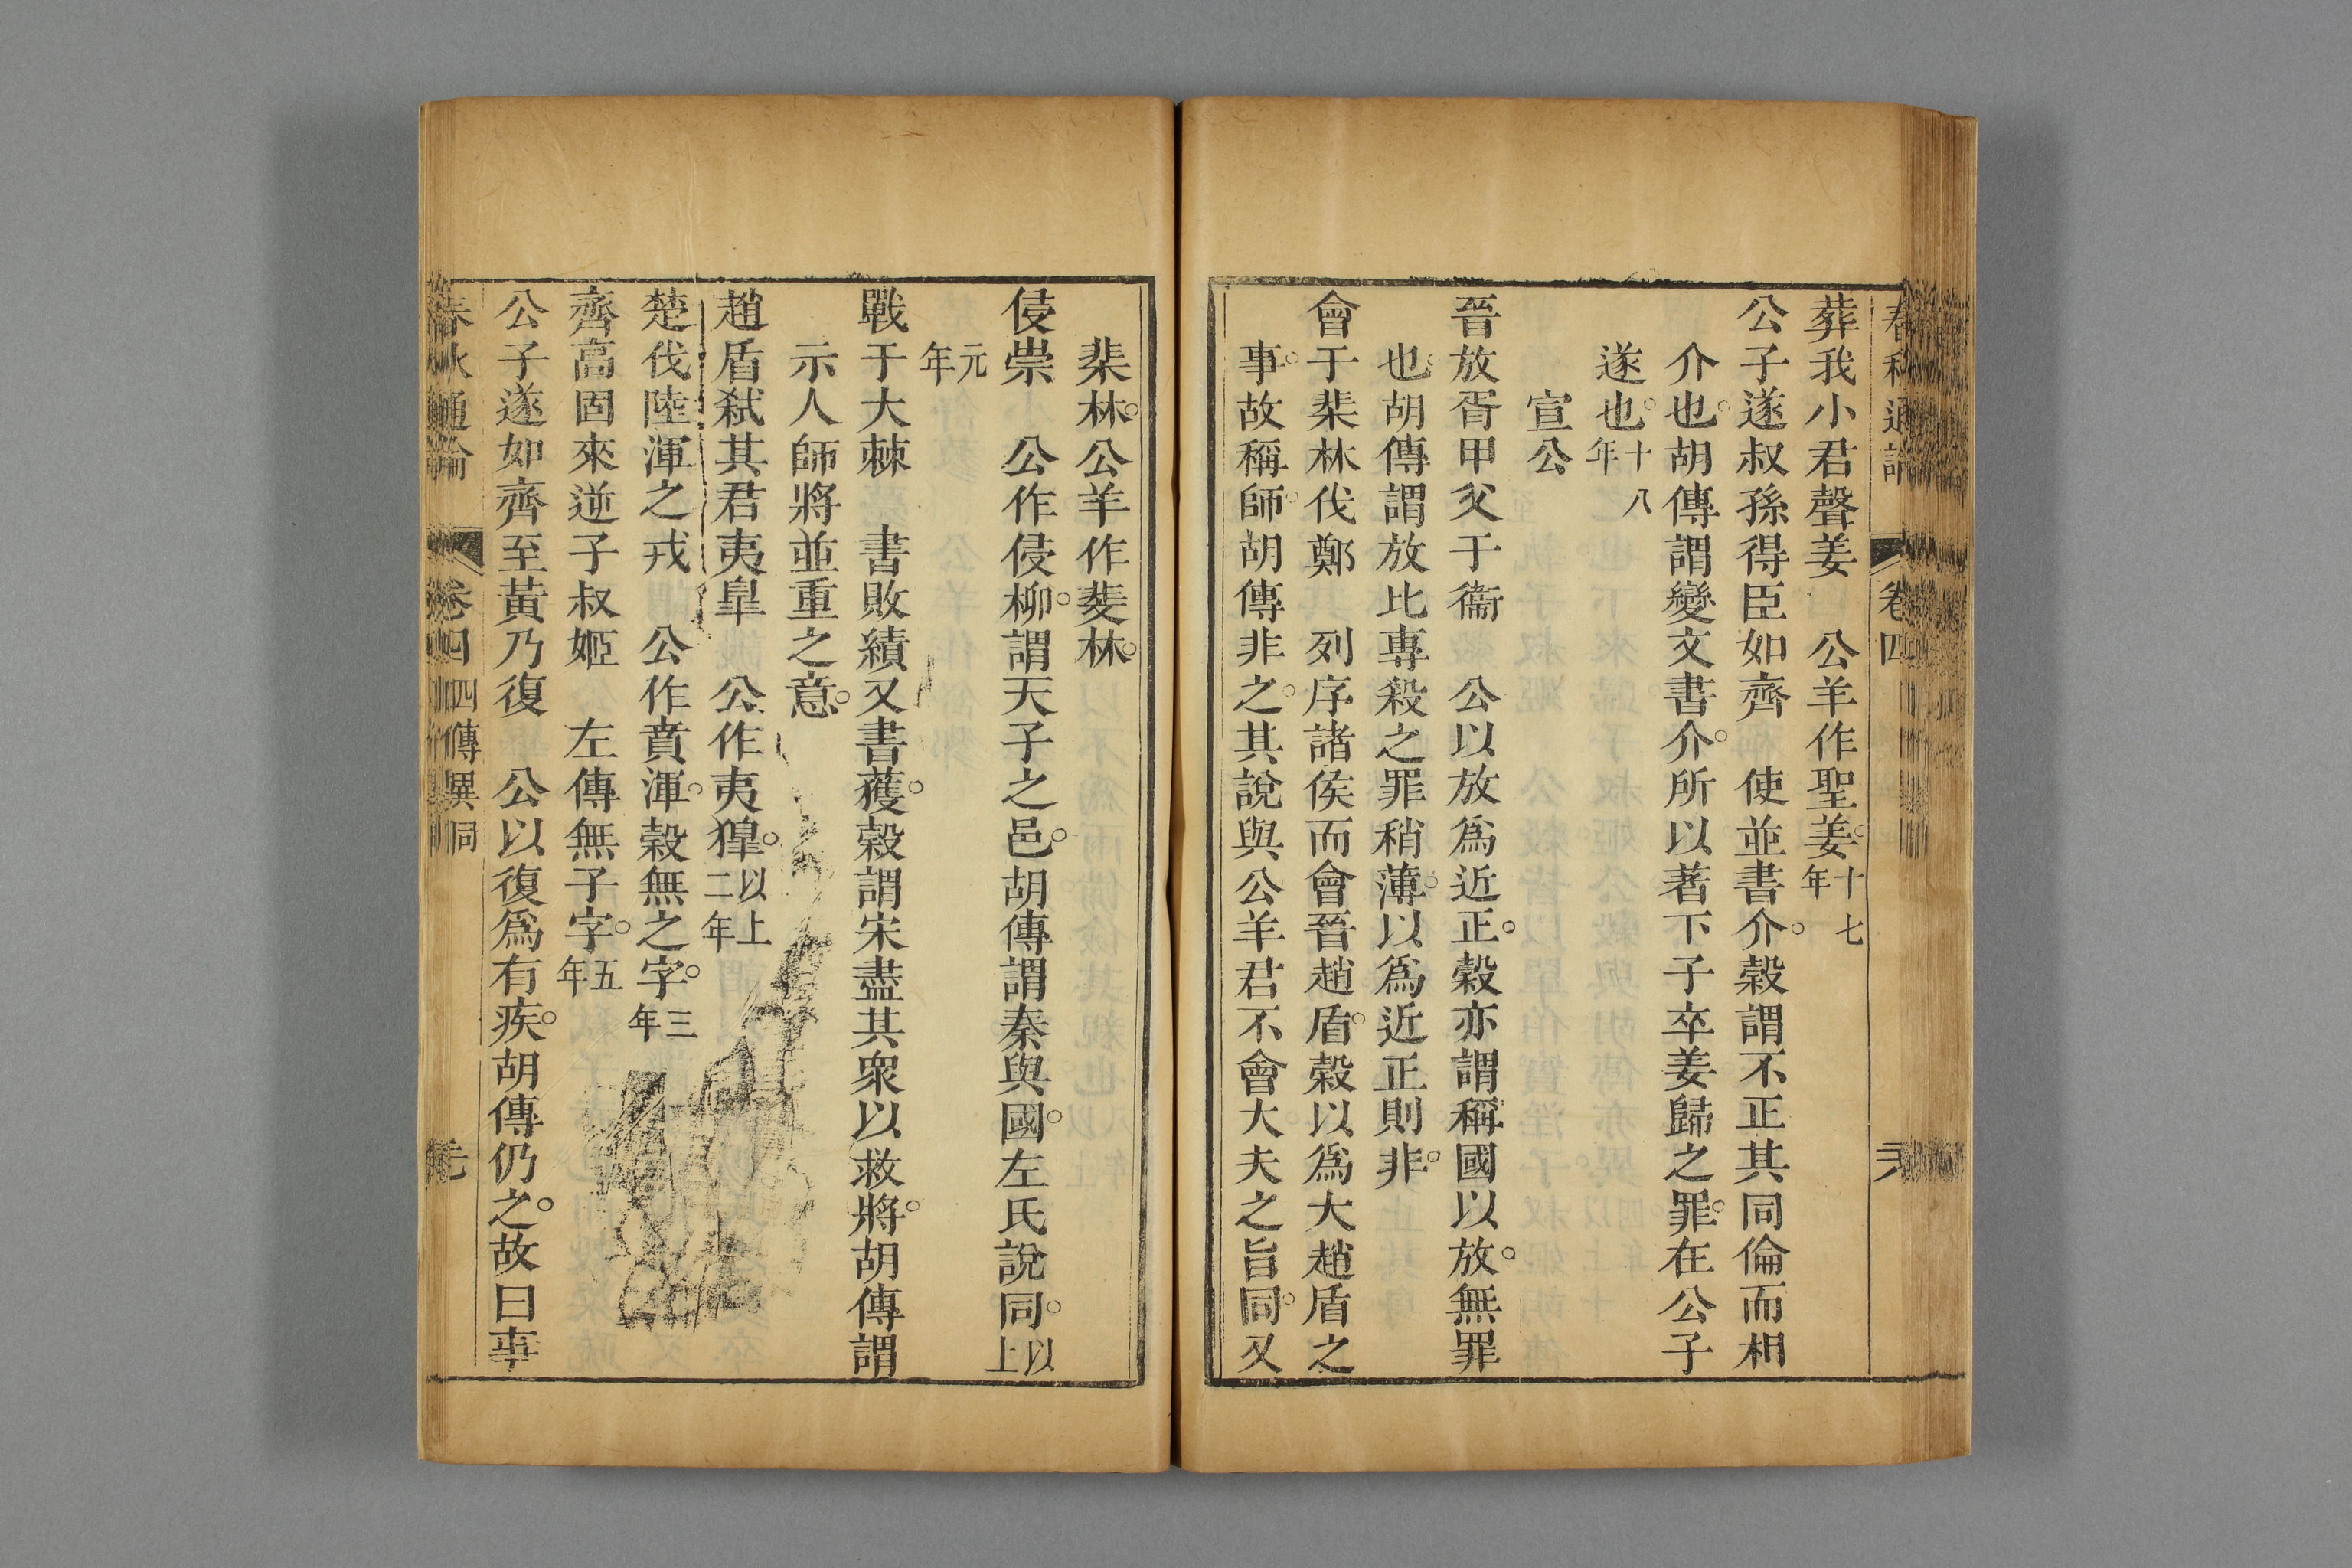 葬我小君聲姜　公羊作聖姜。十七年
公子遂叔孫得臣如齊　使並書介。穀謂不正其同倫而相
介也。胡傳謂變文書介。所以著下子卒姜歸之罪。在公子
遂也。十八年
宣公
晉放胥甲父于衞　公以放爲近正。穀亦謂稱國以放。無罪
也。胡傳謂放比專殺之罪稍薄。以爲近正則非。
會于棐林伐鄭　列序諸侯而會晉趙盾。穀以爲大趙盾之
事。故稱師。胡傳非之。其說與公羊君不會大夫之旨同。又
棐林。公羊作斐林。
侵崇　公作侵柳。謂天子之邑。胡傳謂秦與國。左氏說同。以上
元年
戰于大棘　書敗績又書獲。穀謂宋盡其衆以救將。胡傳謂
示人師將並重之意。
趙盾弑其君夷皐　公作夷獋。以上二年
楚伐陸渾之戎　公作賁渾。穀無之字。三年
齊高固來逆子叔姬　左傳無子字。五年
公子遂如齊至黃乃復　公以復爲有疾。胡傳仍之。故曰事
春秋通論　卷四　四傳異同